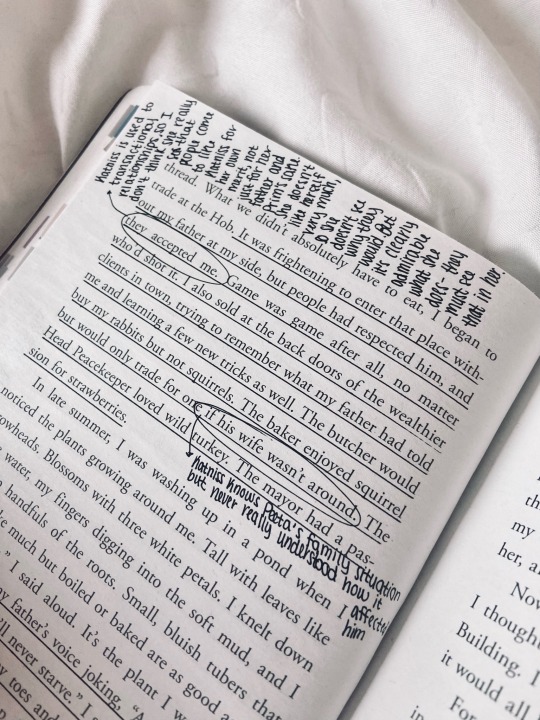 Katniss is used to
transactional
relationships so I
don't think she really
sees that
people come
to like
Katniss for
her own
merit, not
just for her
father and
Prim's sake.
She doesn't
like herself
very much,
so she
doesn't see
why they
would but
it's clearly
admirable
what she
does - they
must see
that in her.
thread. What we didn't absolutely have to eat, I began to
trade at the Hob. It was frightening to enter that place with-
out my father at my side, but people had respected him, and
they accepted me. Game was game after all, no matter
who'd shot it. I also sold at the back doors of the wealthier
clients in town, trying to remember what my father had told
me and learning a few new tricks as well. The butcher would
buy my rabbits but not squirrels. The baker enjoyed squirrel
but would only trade for one if his wife wasn't around. The
Head Peacekeeper loved wild turkey. The mayor had a pas-
sion for strawberries.
Katniss knows Peeta's family situation
but never really understood how it
affected
him
In late summer, I was washing up in a pond when I
noticed the plants growing around me. Tall with leaves like
owheads. Blossoms with three white petals. I knelt down
water, my fingers digging into the soft mud, and I
handfuls of the roots. Small, bluish tubers that
e much but boiled or baked are as good a
," I said aloud. It's the plant I w
y father's voice joking, "A
ll never starve." I s
y toes and
my
her, a
Now
I though
Building. I
it would all
For
in